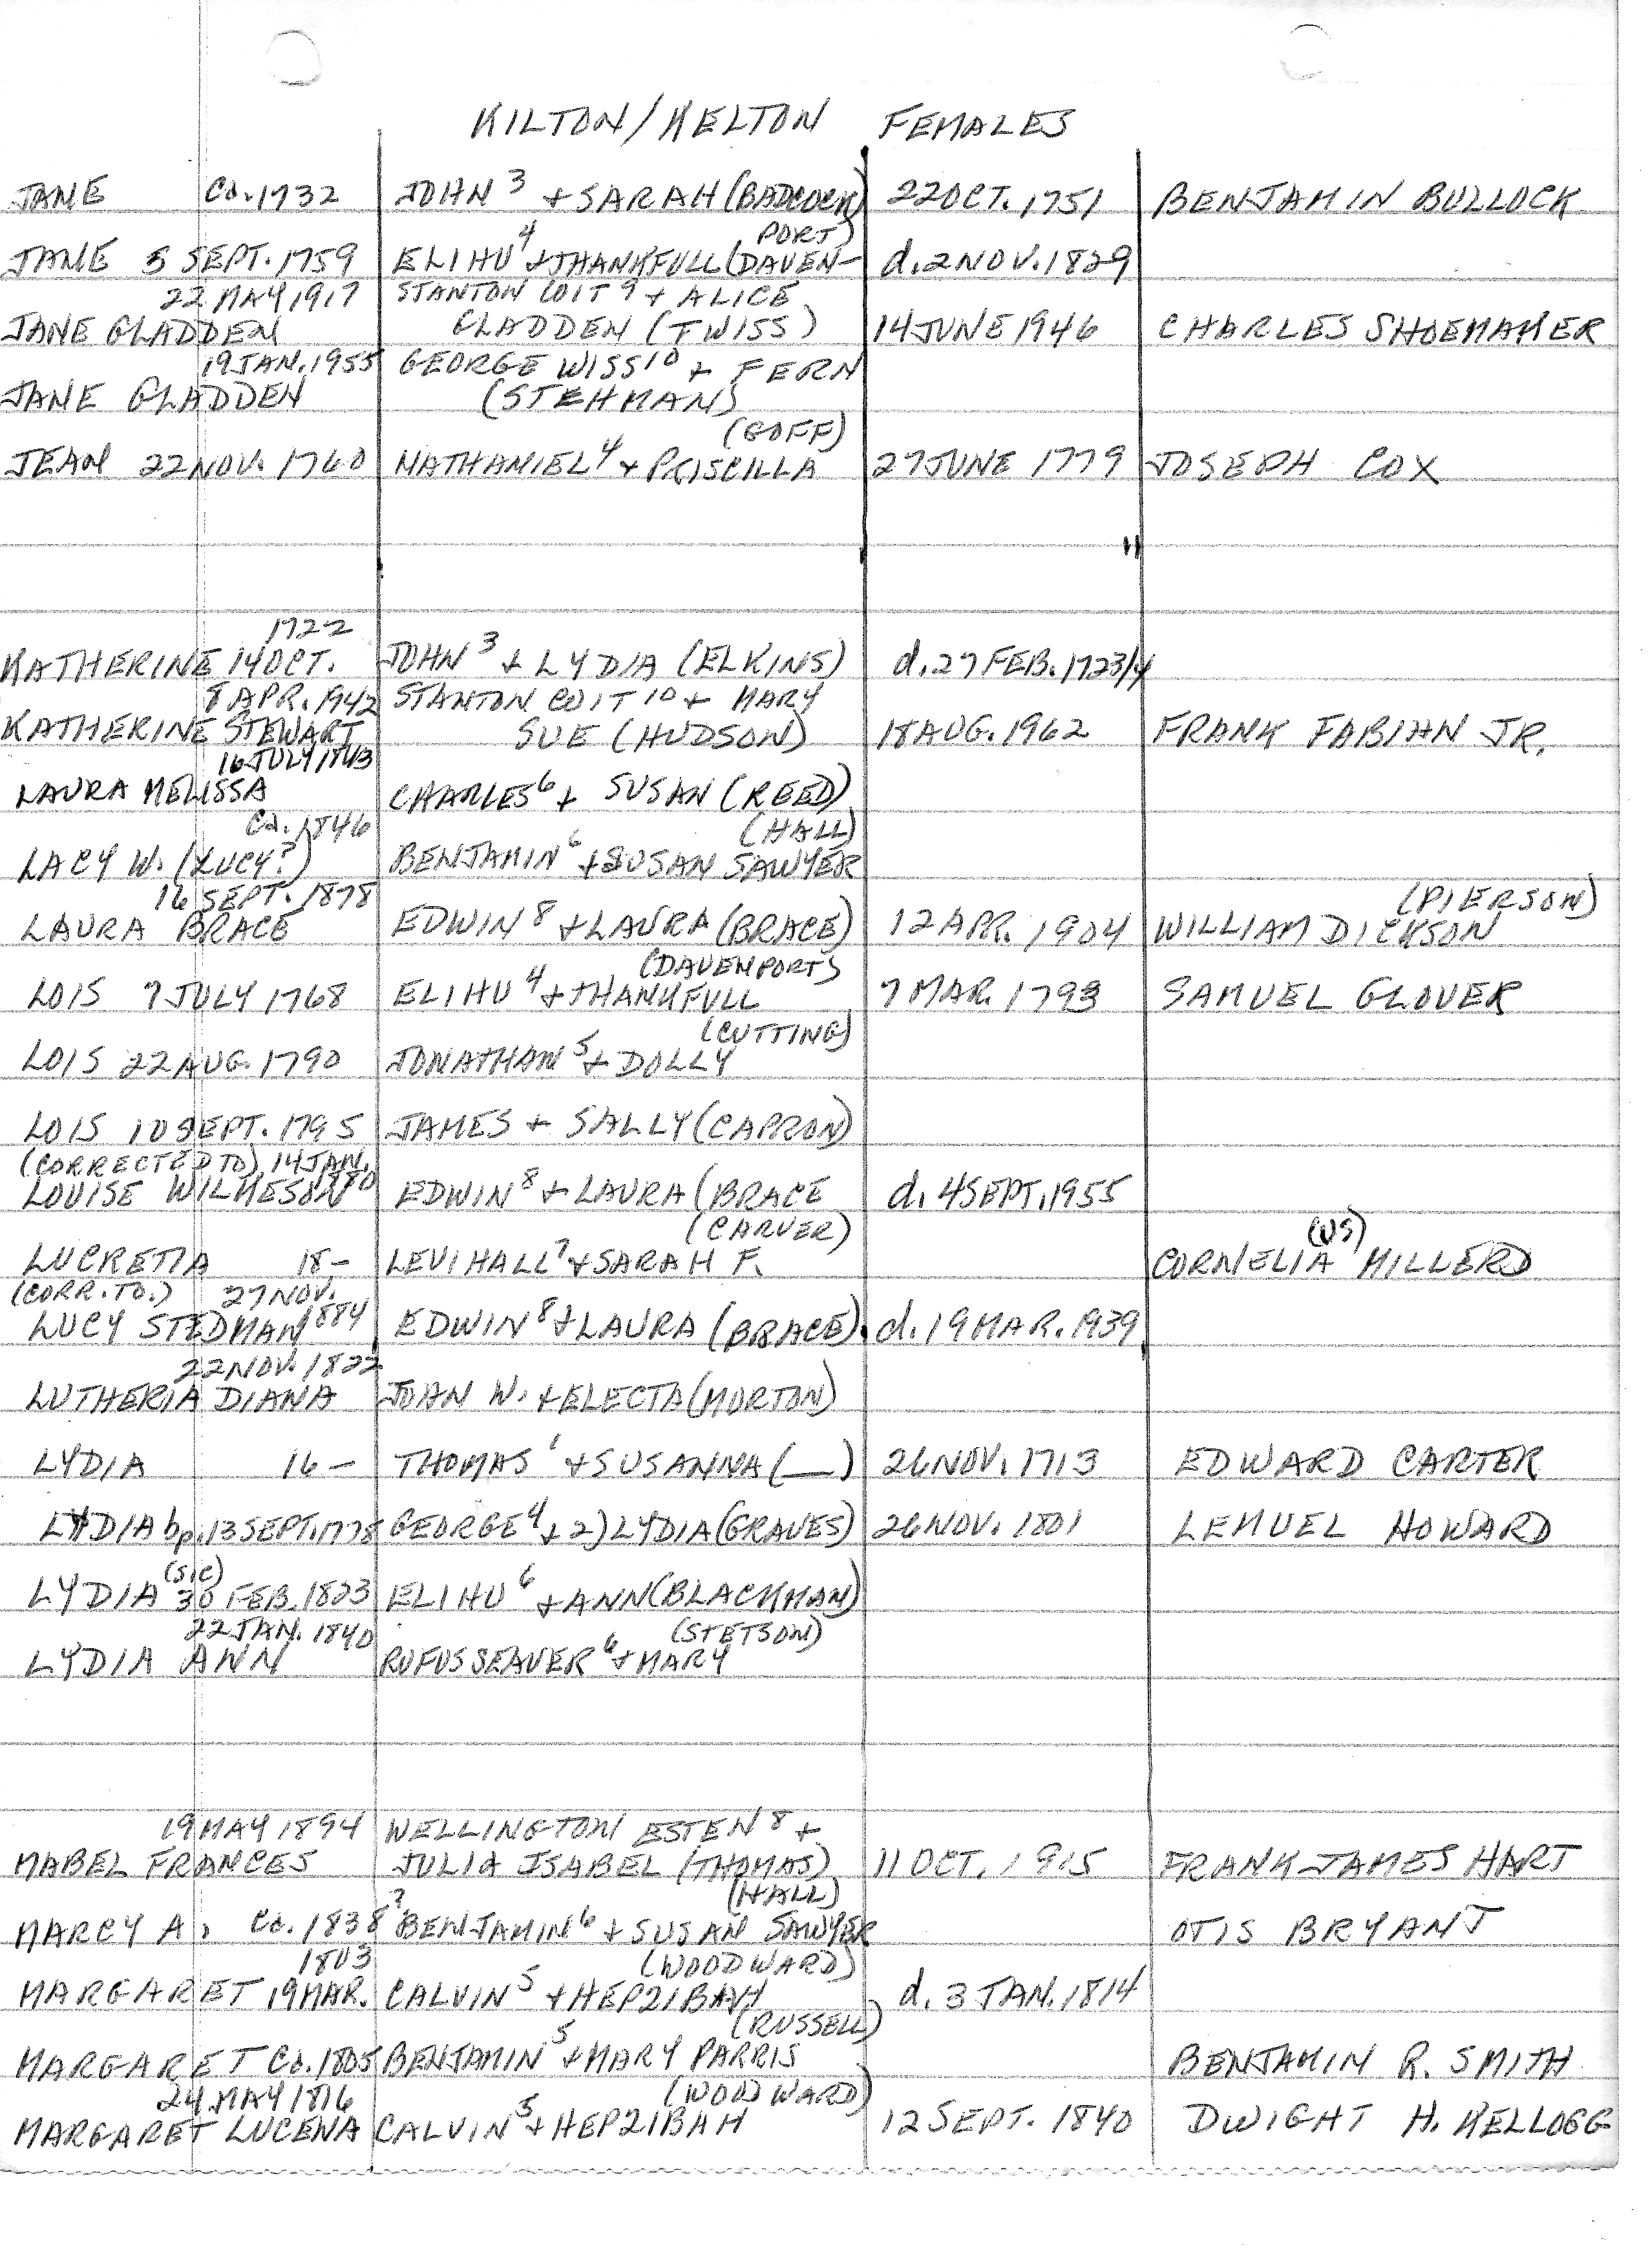 KILTON/KELTON FEMALES
JANE Ca. 1732 JOHN³ + SARAH (BADCOCK) 22 OCT. 1751 BENJAMIN BULLOCK
PORT)
JANE 5 SEPT. 1759 ELIHU⁴ + THANKFULL (DAVEN- d. 2 NOV. 1829
22 MAY 1917 STANTON COIT⁹ + ALICE
JANE GLADDEN GLADDEN (TWISS) 14 JUNE 1946 CHARLES SHOEMAKER
19 JAN. 1955 GEORGE WISS¹⁰ + FERN
JANE GLADDEN (STEHMAN)
(GOFF)
JEAN 22 NOV. 1760 NATHANIEL⁴ + PRISCILLA 27 JUNE 1779 JOSEPH COX
1722
KATHERINE 14 OCT. JOHN³ + LYDIA (ELKINS) d. 27 FEB. 1723/4
8 APR. 1942 STANTON COIT¹⁰ + MARY
KATHERINE STEWART SUE (HUDSON) 18 AUG. 1962 FRANK FABIAN JR.
16 JULY 1843
LAURA MELISSA CHARLES⁶ + SUSAN (REED)
Ca. 1846 (HALL)
LACY W. (LUCY?) BENJAMIN⁶ + SUSAN SAWYER
16 SEPT. 1878 (PIERSON)
LAURA BRACE EDWIN⁸ + LAURA (BRACE) 12 APR. 1904 WILLIAM DICKSON
(DAVENPORT)
LOIS 7 JULY 1768 ELIHU⁴ + THANKFULL 7 MAR. 1793 SAMUEL GLOVER
(CUTTING)
LOIS 22 AUG. 1790 JONATHAN⁵ + DOLLY
LOIS 10 SEPT. 1795 JAMES + SALLY (CAPRON)
(CORRECTED TO) 14 JAN. 1880
LOUISE WILMESON EDWIN⁸ + LAURA (BRACE d. 4 SEPT. 1955
(CARVER) (US)
LUCRETIA 18- LEVI HALL⁷ + SARAH F. CORNELIA MILLERD
(CORR. TO.) 27 NOV. 1884
LUCY STEDMAN EDWIN⁸ + LAURA (BRACE). d. 19 MAR. 1939
22 NOV. 1822
LUTHERIA DIANA JOHN W. + ELECTA (MORTON)
LYDIA 16- THOMAS¹ + SUSANNA (__) 26 NOV. 1713 EDWARD CARTER
LYDIA bp. 13 SEPT. 1778 GEORGE⁴ + 2) LYDIA (GRAVES) 26 NOV. 1801 LEMUEL HOWARD
(SIC)
LYDIA 30 FEB. 1823 ELIHU⁶ + ANN (BLACKMAN)
22 JAN. 1840 (STETSON)
LYDIA ANN RUFUS SEAVER⁶ + MARY
19 MAY 1894 WELLINGTON ESTEN⁸ +
MABEL FRANCES JULIA ISABEL (THOMAS) 11 OCT. 1915 FRANK JAMES HART
(HALL)
MARCY A. Ca. 1838? BENJAMIN⁶ + SUSAN SAWYER OTIS BRYANT
1803 (WOODWARD)
MARGARET 19 MAR. CALVIN⁵ + HEPZIBAH d. 3 JAN. 1814
(RUSSELL)
MARGARET Ca. 1805 BENJAMIN⁵ + MARY PARRIS BENJAMIN R. SMITH
24 MAY 1816 (WOODWARD)
MARGARET LUCENA CALVIN⁵ + HEPZIBAH 12 SEPT. 1840 DWIGHT H. KELLOGG